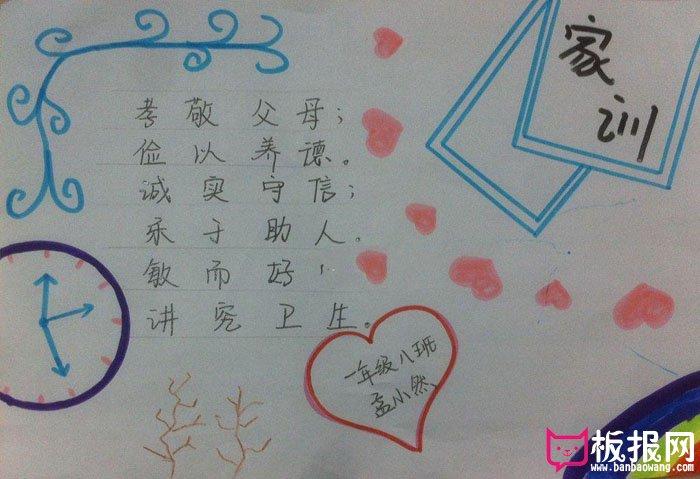 家训
孝敬父母;
俭以养德。
诚实守信;
乐于助人。
敏而好
讲究卫生。
一年级八班
孟小然
板报网
www.banbaowang.com